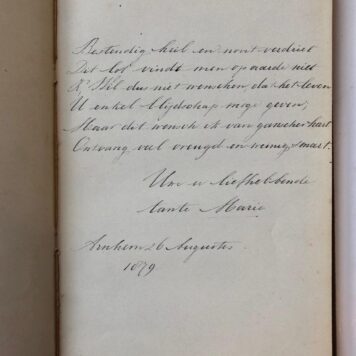 Bestendig heil en nooit verdriet
Dit lot vindt men op aarde niet
'K Wil dus niet wenschen, dat het leven
U enkel blijdschap moge geven,
Maar dit wensch ik van ganscher hart
Ontvang veel vreugd en weinig smart.
Uw u liefhebbende
tante Marie
Arnhem 26 Augustus.
1879